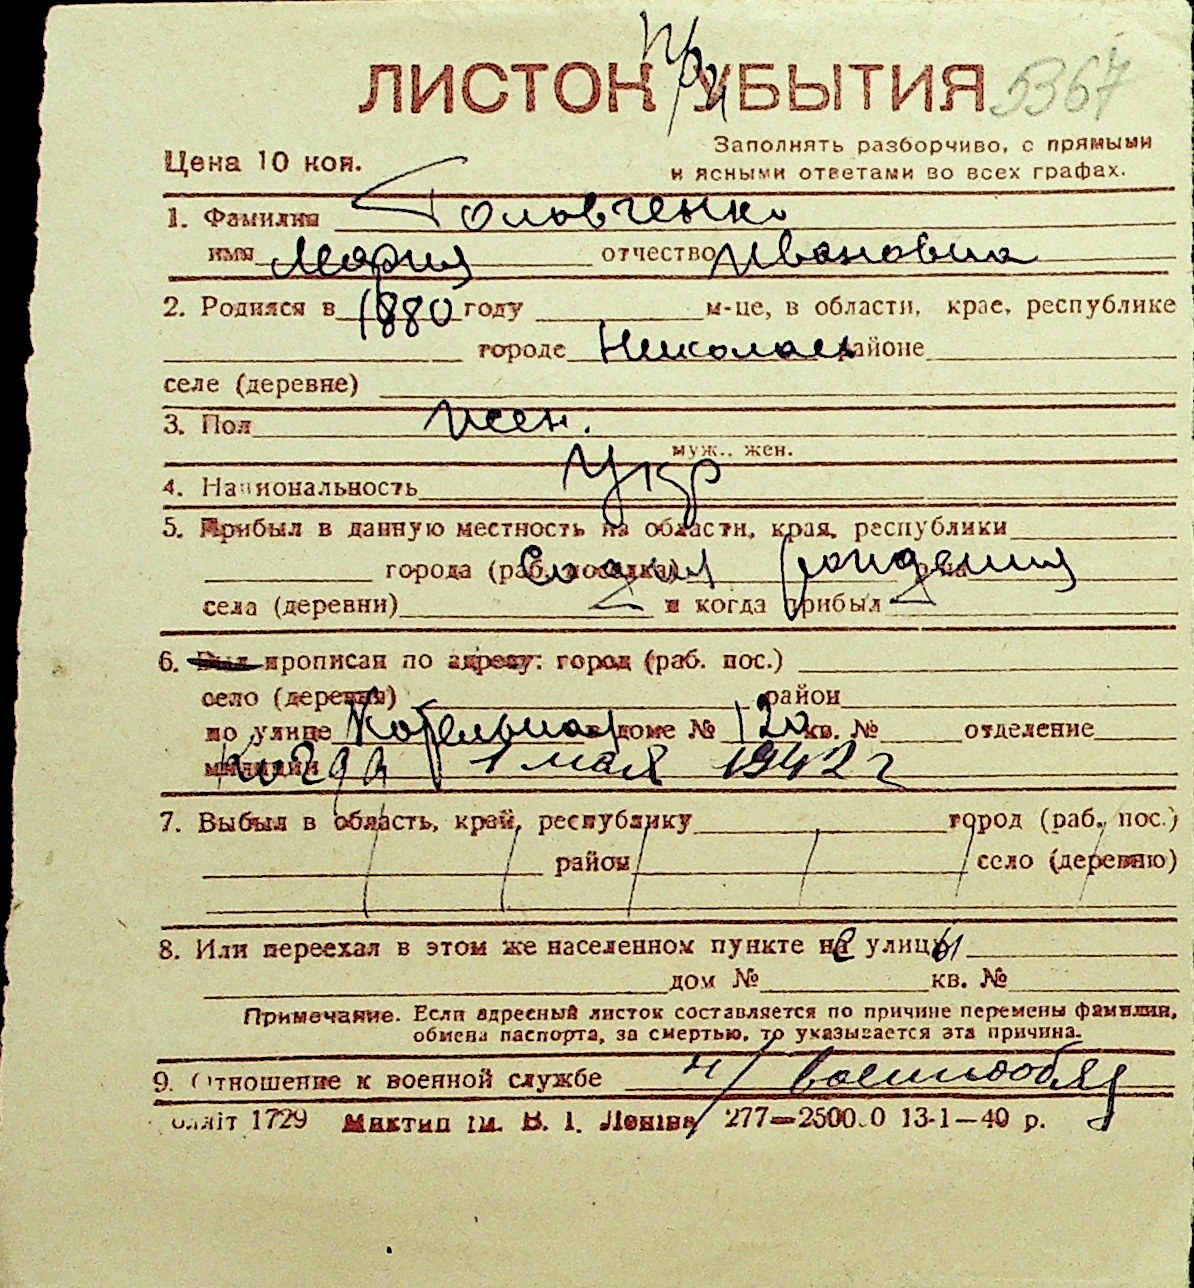 при
ЛИСТОК УБЫТИЯ 5367
Цена 10 коп. Заполнять разборчиво, с прямыми
и ясными ответами во всех графах.
1. Фамилия Головченко
имя Мария отчество Ивановна
2. Родился в 1880 году м-це, в области, крае, республике
городе Николаев районе
селе (деревне)
3. Пол жен.
муж., жен.
4. Национальность Укр
5. Прибыл в данную местность из области, края, республики
города (раб. поселка) рождения
села (деревни) и когда прибыл
6. Был прописан по адресу: город (раб. пос.)
село (деревня) район
по улице Котельная в доме № 120 кв. № отделение
милиции Когда 1 мая 1942 г
7. Выбыл в область, край, республику город (раб. пос.)
район село (деревню)
8. Или переехал в этом же населенном пункте не улицы
дом № кв. №
Примечание. Если адресный листок составляется по причине перемены фамилии,
обмена паспорта, за смертью, то указывается эта причина.
9. Отношение к военной службе н/военнообяз
олліт 1729 Миктип ім. В. І. Леніна 277—25000 13-1—40 р.